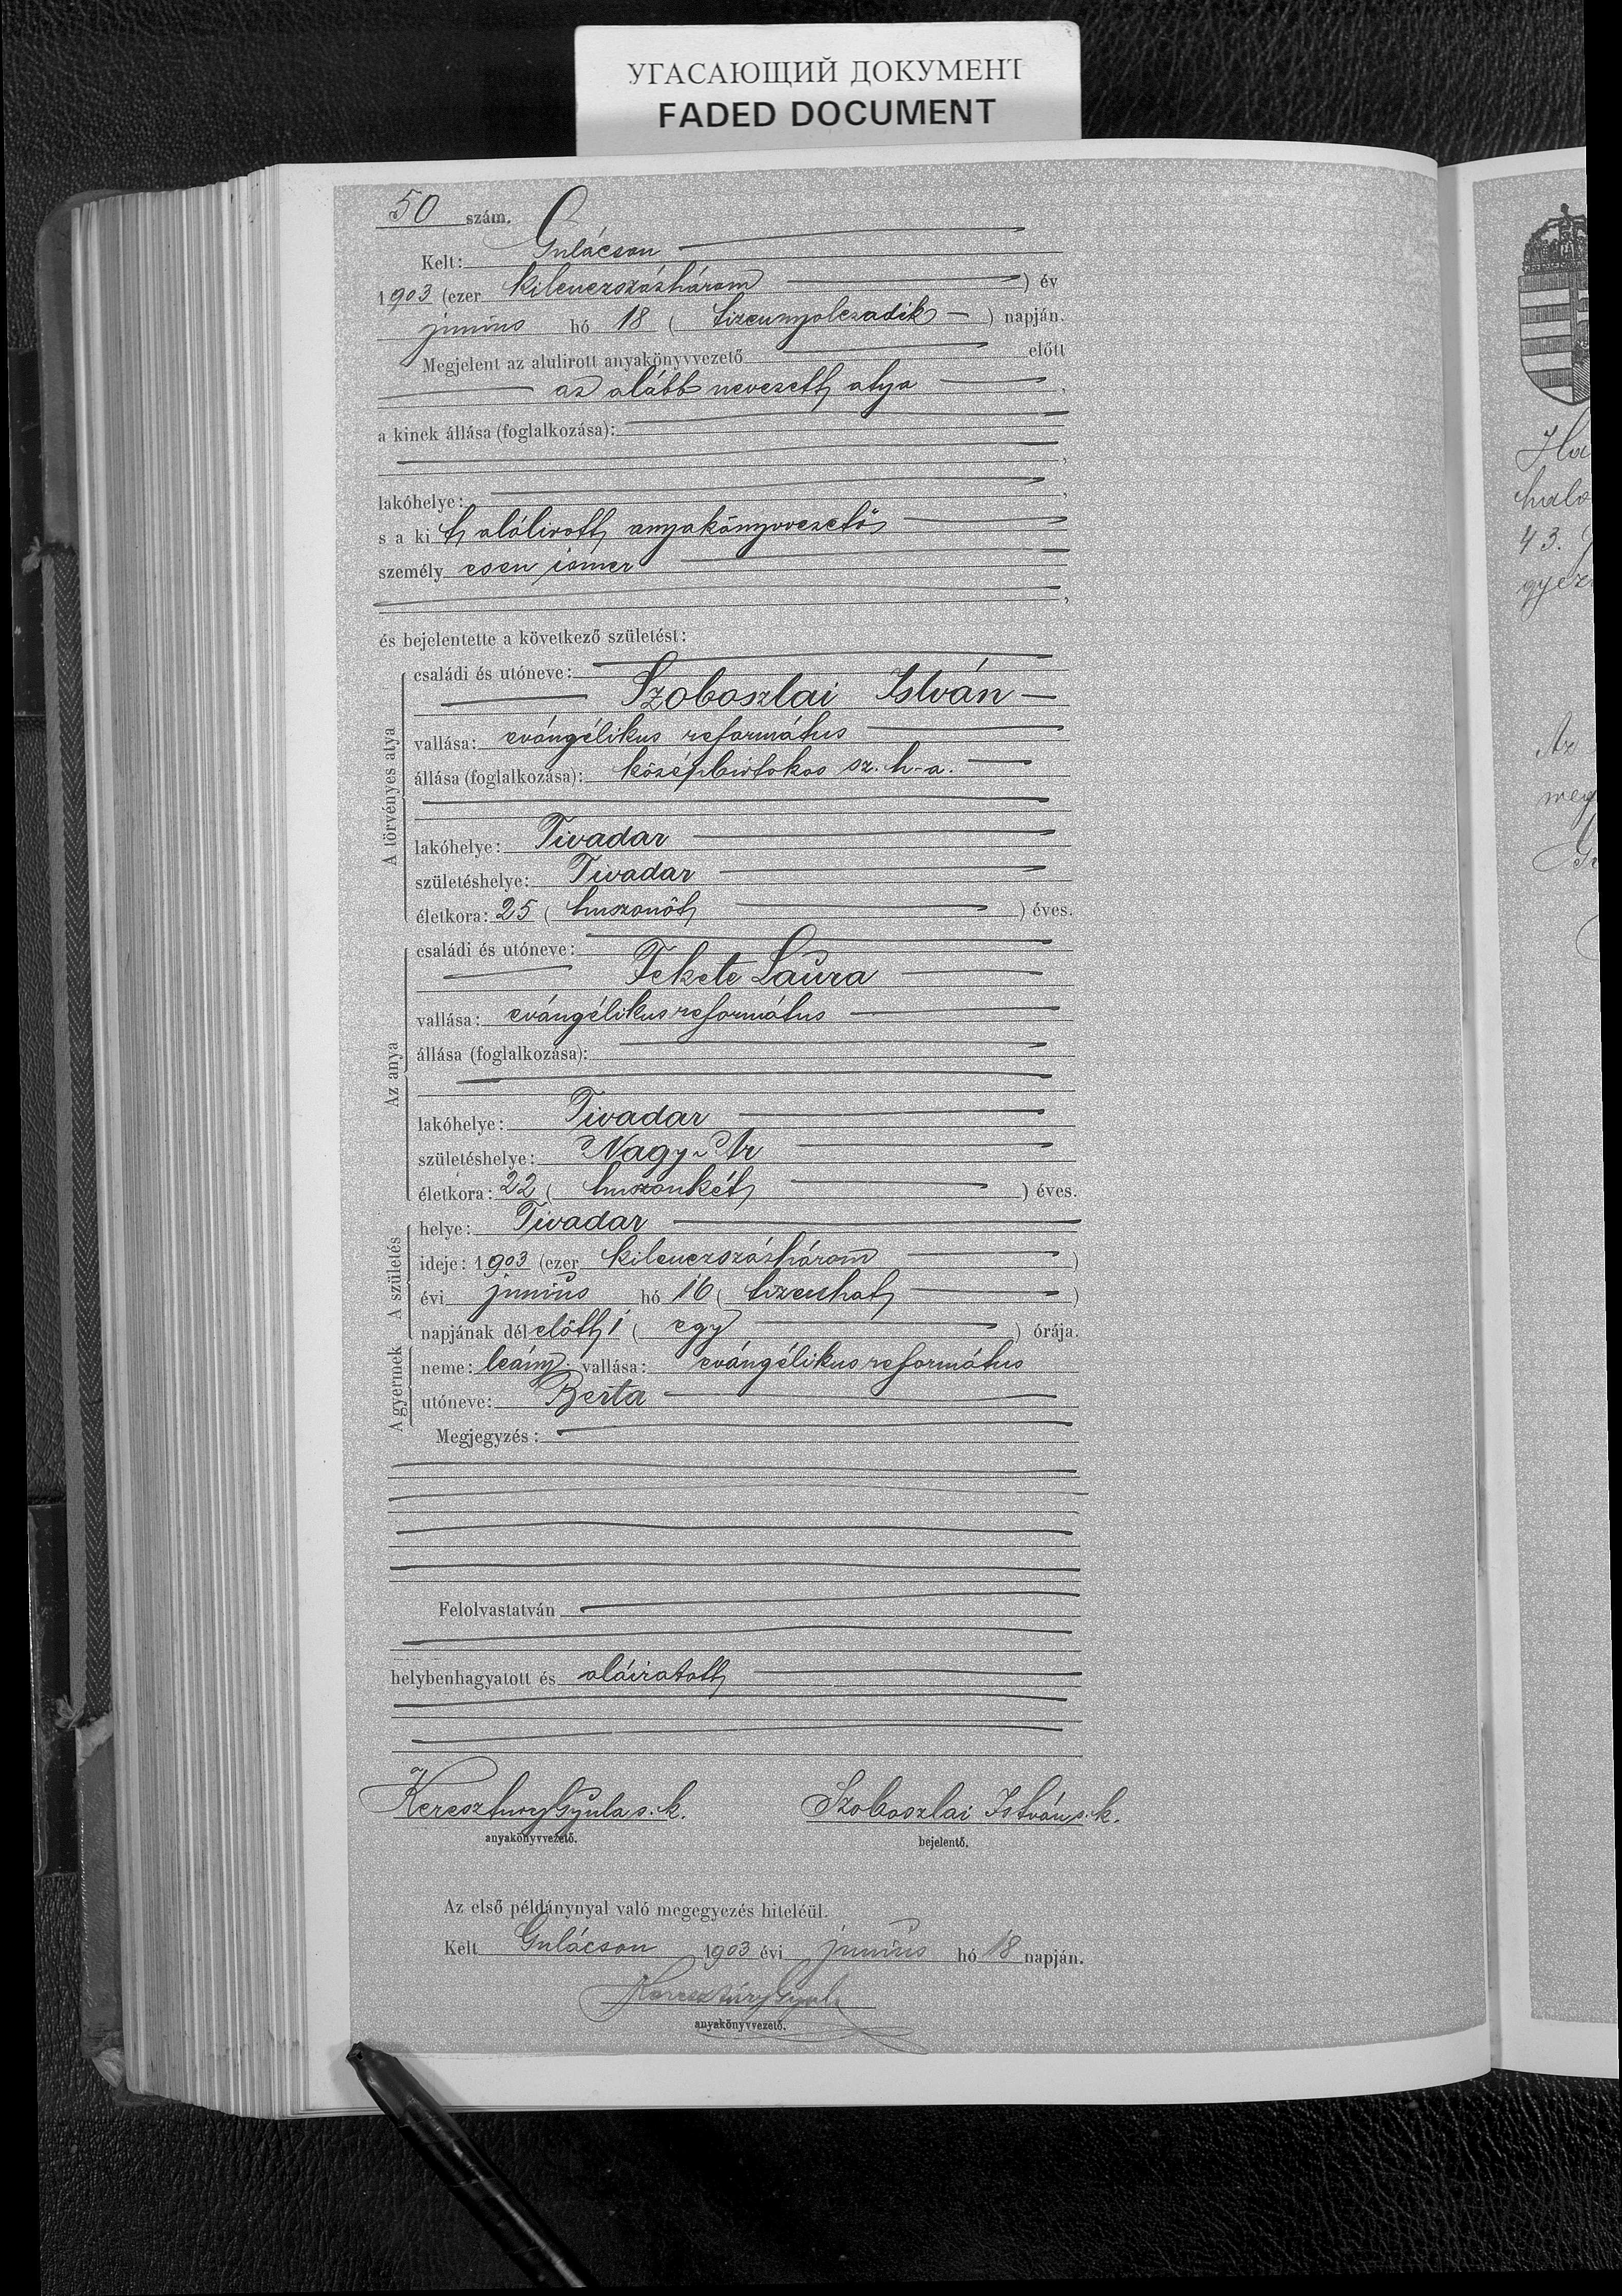 УГАСАЮЩИЙ ДОКУМЕНТ
FADED DOCUMENT
50 szám.
Kelt: Gulácson
1903 (ezer kilenczszázhárom) év
junius hó 18 (tizennyolczadik) napján.
Megjelent az alulirott anyakönyvvezető előtt
az alább nevezett atya,
a kinek állása (foglalkozása):
,
lakóhelye:,
s a kit alólirott anyakönyvvezető
személyesen ismer
,
és bejelentette a következő születést:
A törvényes atya
családi és utóneve:
Szoboszlai István
vallása: evángélikus református
állása (foglalkozása): középbirtokos sz. h-a.
lakóhelye: Tivadar
születéshelye: Tivadar
életkora: 25 (huszonöt) éves.
Az anya
családi és utóneve:
Fekete Laura
vallása: evángélikus református
állása (foglalkozása):
lakóhelye: Tivadar
születéshelye: Nagy-Ar
életkora: 22 (huszonkét) éves.
A születés
helye: Tivadar
ideje: 1903 (ezer kilenczszázhárom)
évi junius hó 16 (tizenhat)
napjának délelőtt 1 (egy) órája.
A gyermek
neme: leány; vallása: evángélikus református
utóneve: Berta
Megjegyzés:
Felolvastatván
helybenhagyatott és aláiratott
Keresztury Gyula s. k. Szoboszlai István s. k.
anyakönyvvezető. bejelentő.
Az első példánynyal való megegyezés hiteléül.
Kelt Gulácson 1903 évi junius hó 18 napján.
Keresztúry Gyula
anyakönyvvezető.
43.